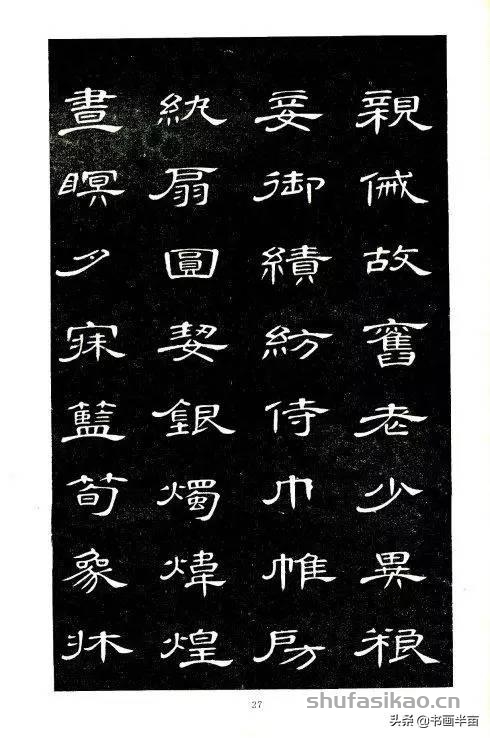 親戚故舊老少異粮
妾御績紡侍巾帷房
紈扇圓絜銀燭煒煌
晝瞑夕寐藍筍象牀
27
shufasikao.cn
头条@书画半亩